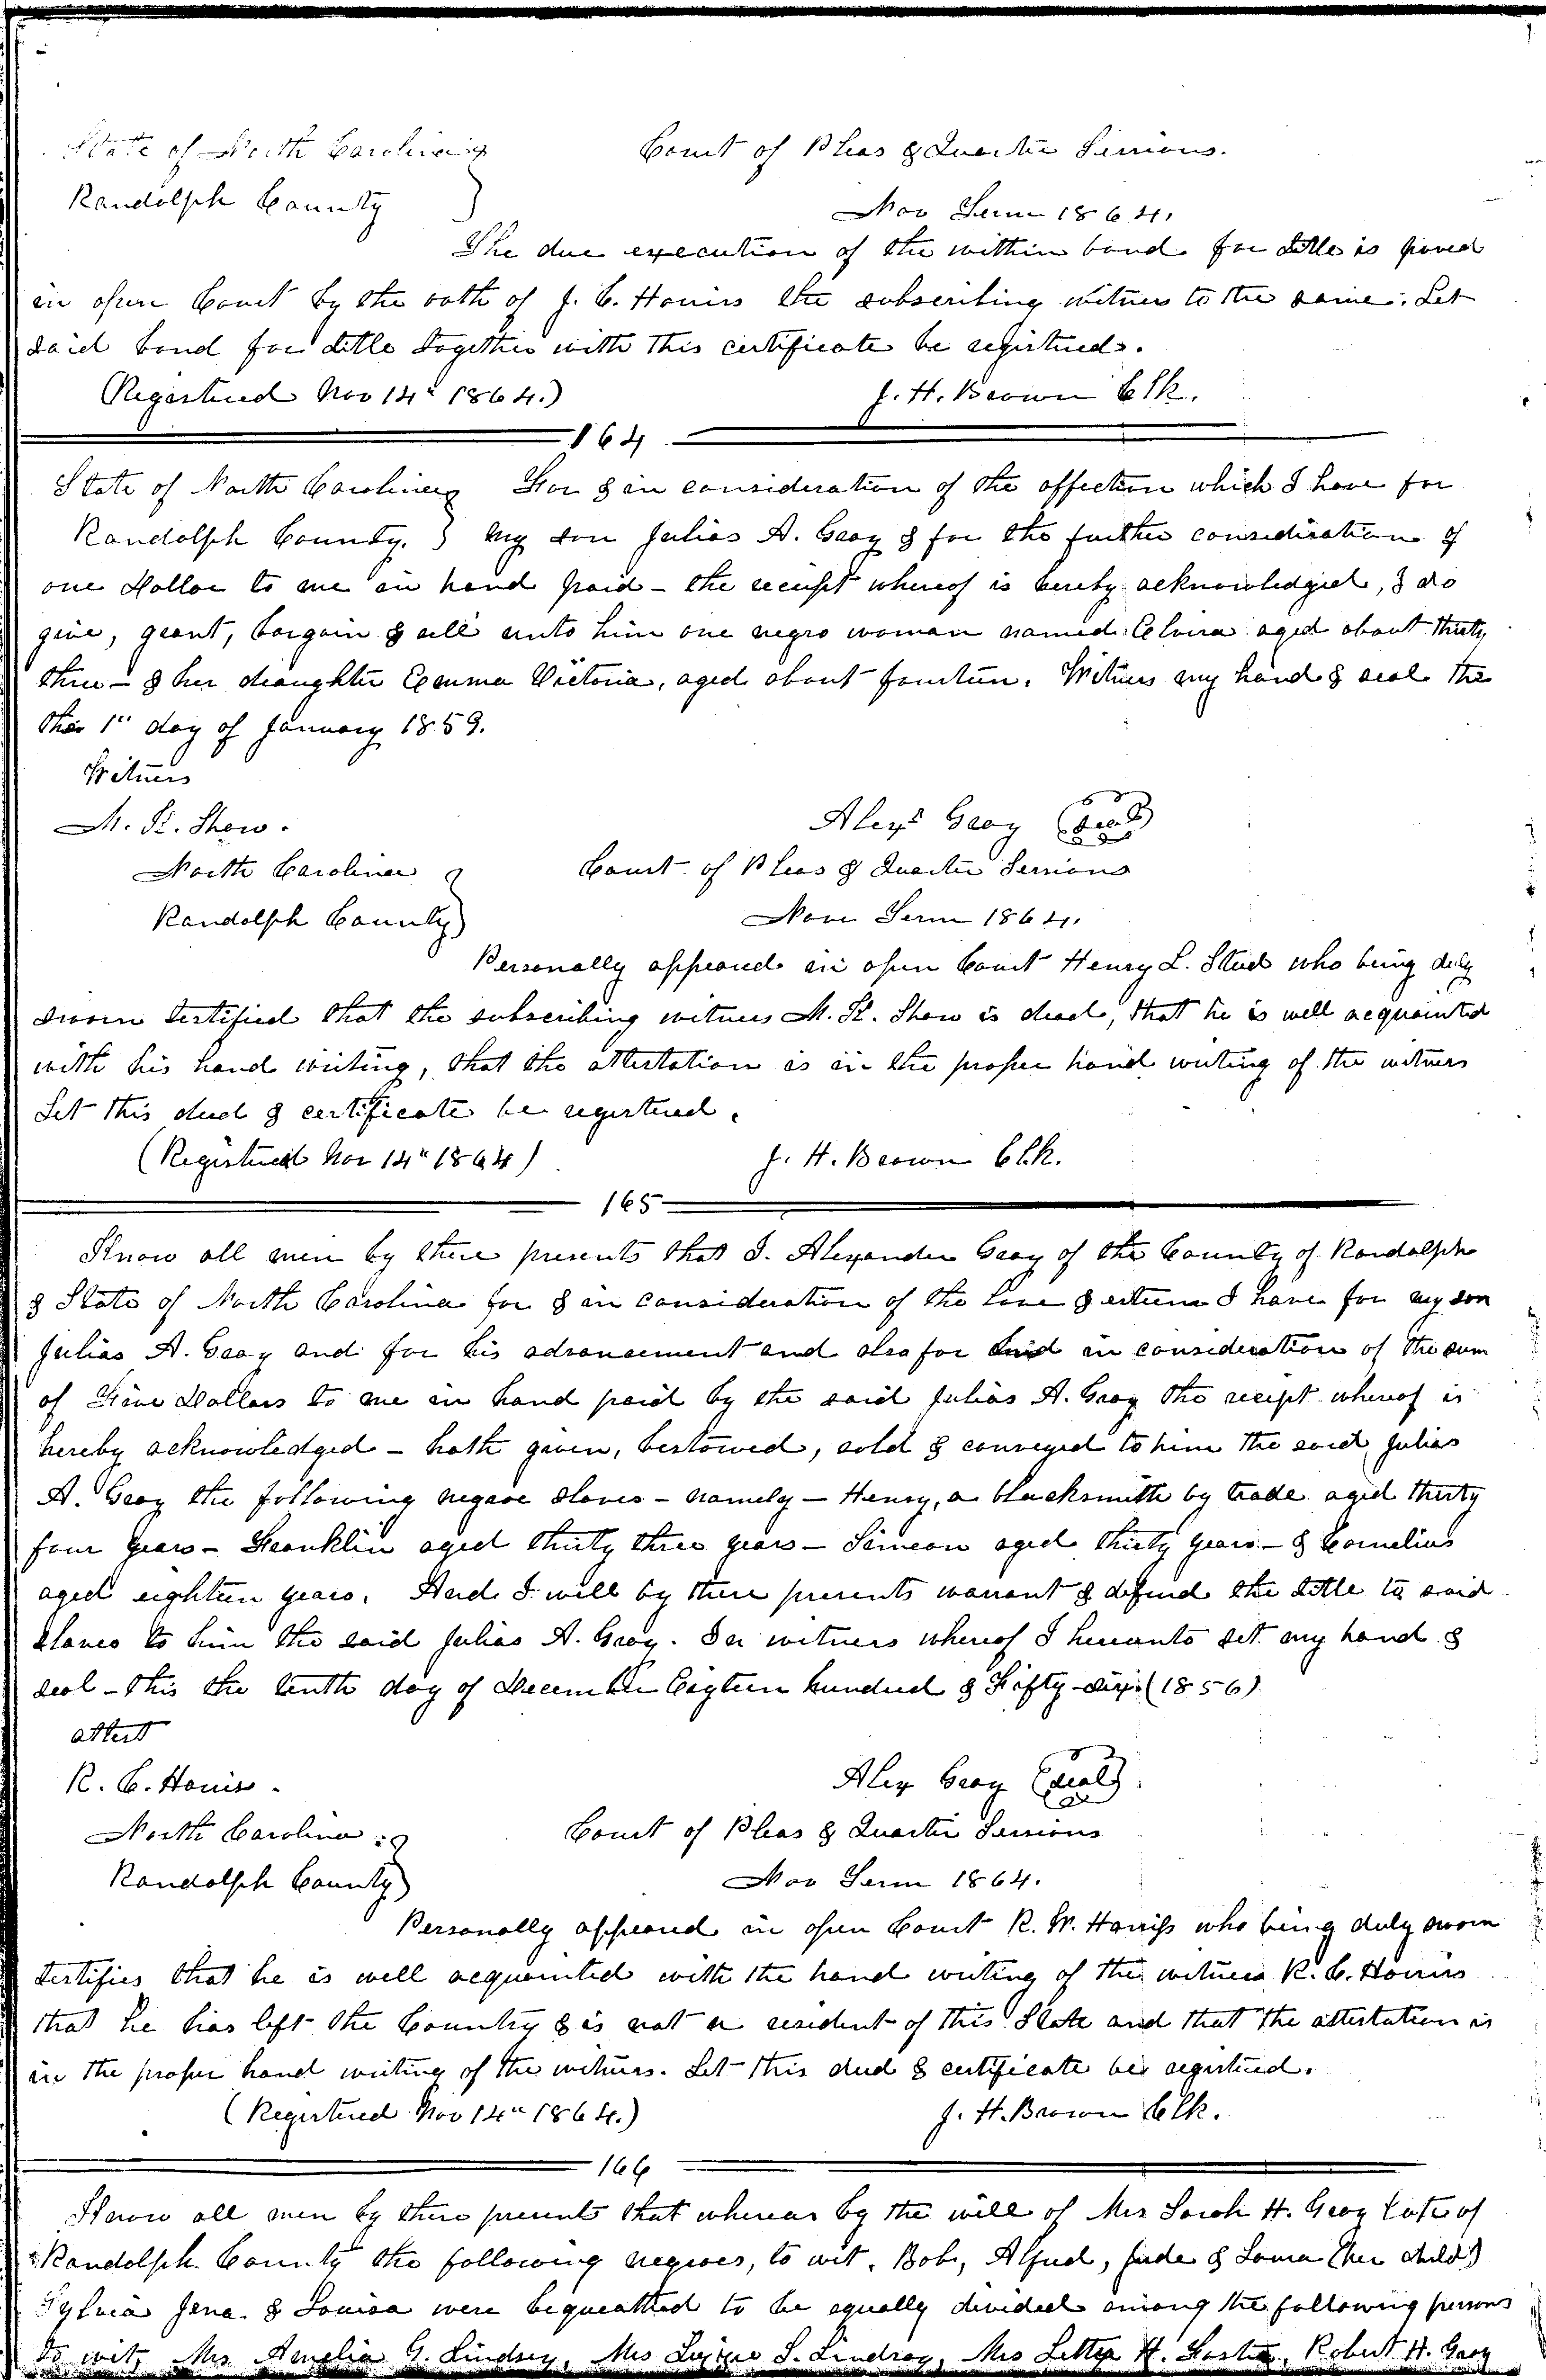 State of North Carolina Court of Pleas & Quarter Sessions.
Randolph County Nov Term 1864.
The due execution of the within bond for title is proved
in open Court by the oath of J. C. Harris the subscribing witness to the same. Let
said bond for title together with this certificate be registered.
(Registered Nov 14th 1864.) J. H. Brown Clk.
164
State of North Carolina For & in consideration of the affection which I have for
Randolph County. my son Julius A. Gray & for the further consideration of
one Dollar to me in hand paid - the receipt whereof is hereby acknowledged, I do
give, grant, bargain & sell unto him one negro woman named Elvira aged about thirty
three - & her daughter Emma Victoria, aged about fourteen. Witness my hand & seal this
the 1st day of January 1859.
Witness
M. S. Shaw. Alexr Gray (seal)
North Carolina Court of Pleas & Quarter Sessions
Randolph County Nov Term 1864.
Personally appeared in open Court Henry L. Steed who being duly
sworn testified that the subscribing witness M. S. Shaw is dead, that he is well acquainted
with his hand writing, that the attestation is in the proper hand writing of the witness
Let this deed & certificate be registered.
(Registered Nov 14th 1864) J. H. Brown Clk.
165
Know all men by these presents that I. Alexander Gray of the County of Randolph
& State of North Carolina for & in consideration of the love & esteem I have for my son
Julius A. Gray and for his advancement and also for and in consideration of the sum
of Five Dollars to me in hand paid by the said Julius A. Gray the receipt whereof is
hereby acknowledged - hath given, bestowed, sold & conveyed to him the said Julius
A. Gray the following negroe slaves - namely - Henry, a blacksmith by trade aged thirty
four years - Franklin aged thirty three years - Simeon aged thirty years - & Cornelius
aged eighteen years. And I will by these presents warrant & defend the title to said
slaves to him the said Julius A. Gray. In witness whereof I hereunto set my hand &
seal - this the tenth day of December Eighteen hundred & Fifty-six (1856)
attest
R. C. Harris. Alex Gray (seal)
North Carolina Court of Pleas & Quarter Sessions
Randolph County Nov Term 1864.
Personally appeared in open Court R. W. Harriss who being duly sworn
testifies that he is well acquainted with the hand writing of the witness R. C. Harris
that he has left the Country & is not a resident of this State and that the attestation is
in the proper hand writing of the witness. Let this deed & certificate be registered.
(Registered Nov 14th 1864.) J. H. Brown Clk.
166
Know all men by these presents that whereas by the will of Mrs Sarah H. Gray late of
Randolph County the following negroes, to wit, Bob, Alfred, Jude & Laura (her child)
Sylvia Jena & Louisa were bequeathed to be equally divided among the following persons
to wit, Mrs Amelia G. Lindsey, Mrs S. Lindsay, Mrs Letter H. Robert H. Gray